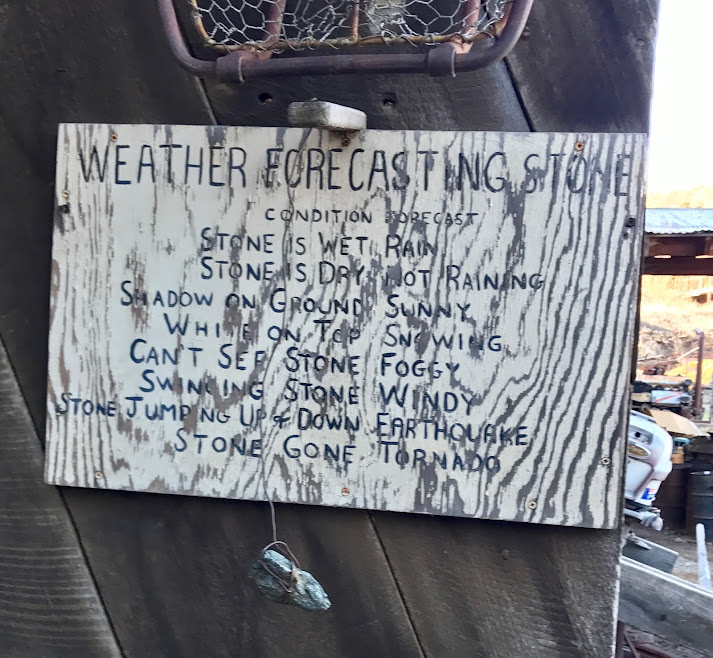 WEATHER FORECASTING STONE
CONDITION FORECAST
STONE IS WET RAIN
STONE IS DRY NOT RAINING
SHADOW ON GROUND SUNNY
WHITE ON TOP SNOWING
CAN'T SEE STONE FOGGY
SWINGING STONE WINDY
STONE JUMPING UP & DOWN EARTHQUAKE
STONE GONE TORNADO